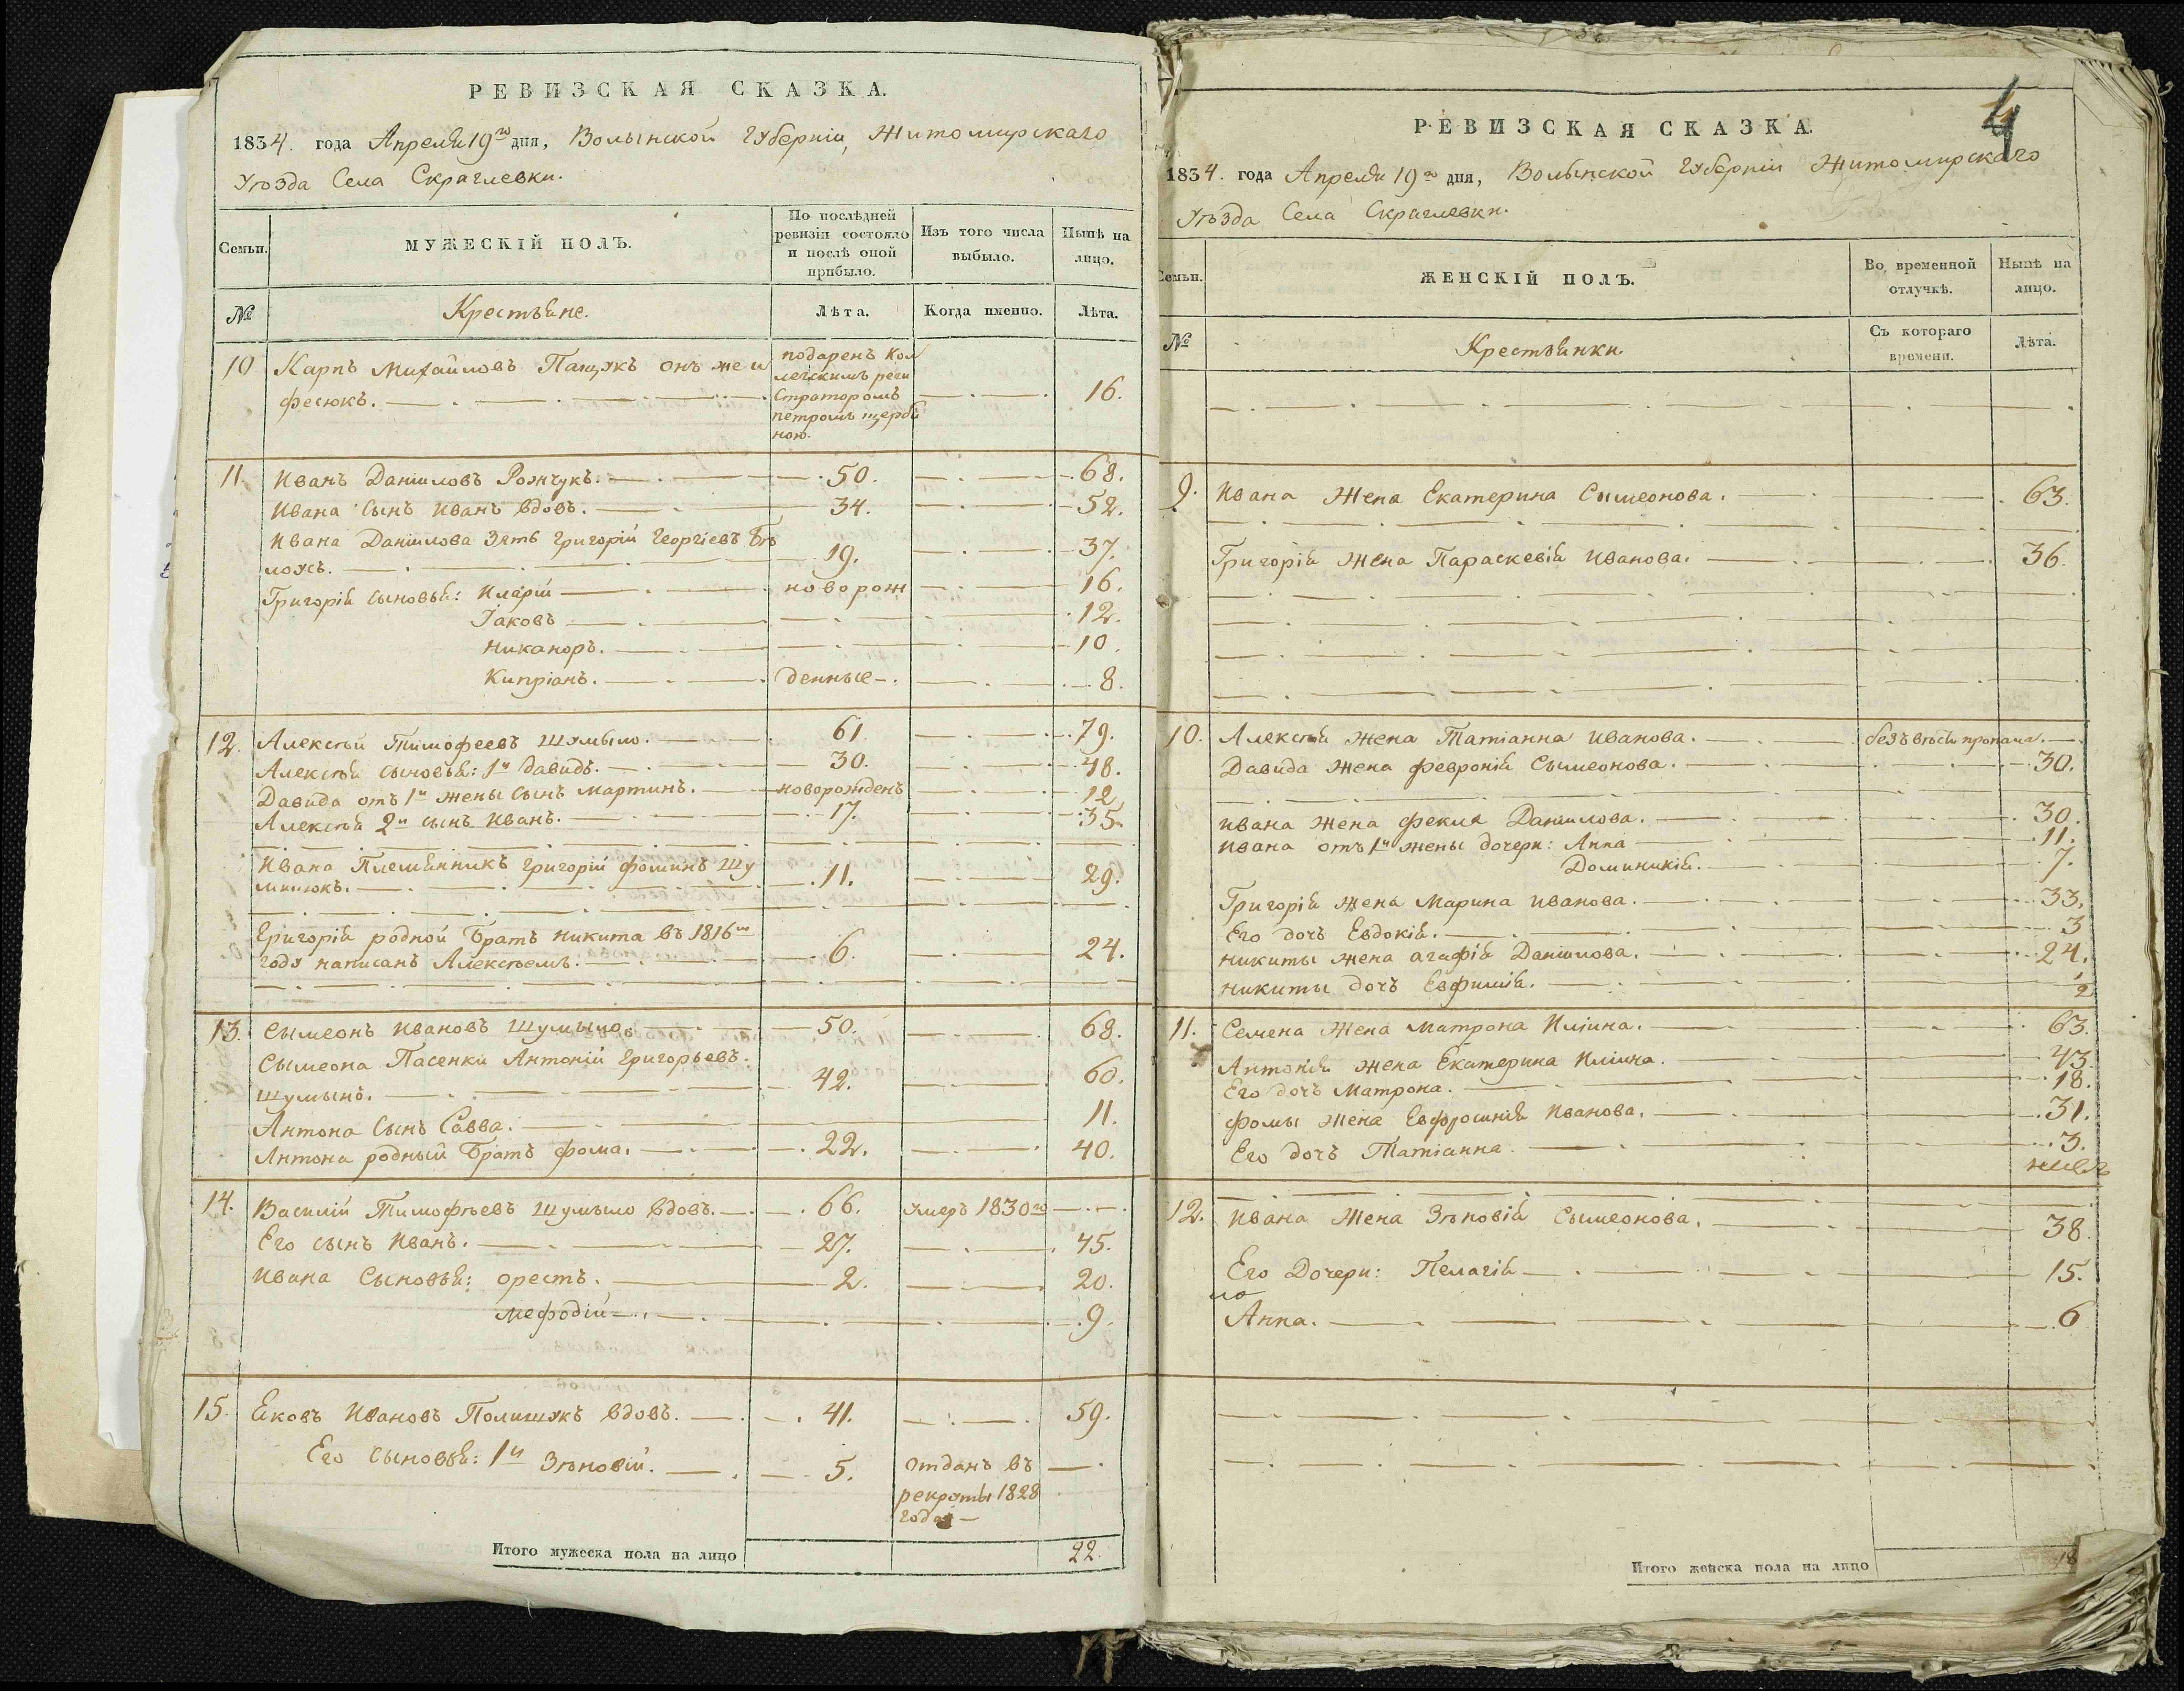 РЕВИЗСКАЯ СКАЗКА.
1834. года Апреля 19го дня, Волынской Губерніи, Житомирскаго
Уѣзда Села Скраглевки.
Семьи.
МУЖЕСКІЙ ПОЛЪ.
По послѣдней ревизіи состояло и послѣ оной прибыло.
Изъ того числа выбыло.
Нынѣ на лицо.
№
Крестьяне.
Лѣта.
Когда именно.
Лѣта.
10 Карпъ Михайловъ Пащукъ онъ же и подаренъ кол
лежскимъ реги
фесюкъ. страторомъ 16.
петромъ щерби
ною.
11. Иванъ Даніиловъ Рожчукъ. 50. 68.
Ивана сынъ Иванъ вдовъ. 34. 52.
Ивана Даніилова Зять Григорій Георгіевъ Бѣ
лоусъ. 19. 37.
Григорія сыновья: Иларій новорож 16.
Іаковъ 12.
Никаноръ. 10.
Кипріанъ. денные 8.
12. Алексѣй Тимофеевъ Шумыло. 61. 79.
Алексѣя сыновья: 1й Давидъ. 30. 48.
Давида отъ 1й жены сынъ Мартинъ. новорожденъ 12
Алексѣя 2й сынъ Иванъ. 17. 35.
Ивана Племянникъ Григорій Фоминъ Шу
милюкъ. 11. 29.
Григорія родной Братъ Никита въ 1816м
году написанъ Алексѣемъ. 6. 24.
13. Сымеонъ Ивановъ Шумыло. 50. 68.
Сымеона Пасенки Антоній Григорьевъ.
Шумыло. 42. 60.
Антона Сынъ Савва. 11.
Антона родный Братъ Фома. 22. 40.
14. Василій Тимофѣевъ Шумыло вдовъ. 66. умеръ 1830го
Его сынъ Иванъ. 27. 45.
Ивана Сыновья: Орестъ. 2. 20.
Мефодій 9.
15. Яковъ Ивановъ Полищукъ вдовъ. 41. 59.
Его сыновья: 1й Зѣновій. 5. отданъ въ
рекруты 1828
года
Итого мужеска пола на лицо 22.
4
РЕВИЗСКАЯ СКАЗКА.
1834. года Апреля 19го дня, Волынской Губерніи Житомирскаго
Уѣзда Села Скраглевки.
Семьи.
ЖЕНСКІЙ ПОЛЪ.
Во временной отлучкѣ.
Нынѣ на лицо.
№
Крестьянки.
Съ котораго времени.
Лѣта.
9. Ивана Жена Екатерина Сымеонова. 63.
Григорія Жена Параскевія Иванова. 36.
10. Алексѣя жена Татіанна Иванова. безъвѣсти пропала.
Давида жена Февронія Сымеонова. 30.
Ивана жена Фекла Даніилова. 30.
Ивана отъ 1й жены дочери: Анна 11.
Доминикія. 7.
Григорія жена Марина Иванова. 33.
Его дочъ Евдокія. 3
Никиты жена Агафія Даніилова. 24.
Никиты дочъ Евфимія. ½
11. Семена Жена Матрона Иліина. 63.
Антонія жена Екатерина Иліина. 43.
Его дочъ Матрона. 18.
Фомы жена Евфросинія Иванова. 31.
Его дочъ Татіанна. 3.
12. Ивана Жена Зѣновія Сымеонова. 38.
Его Дочери: Пелагія 15.
Анна. 6
Итого женска пола на лицо 18